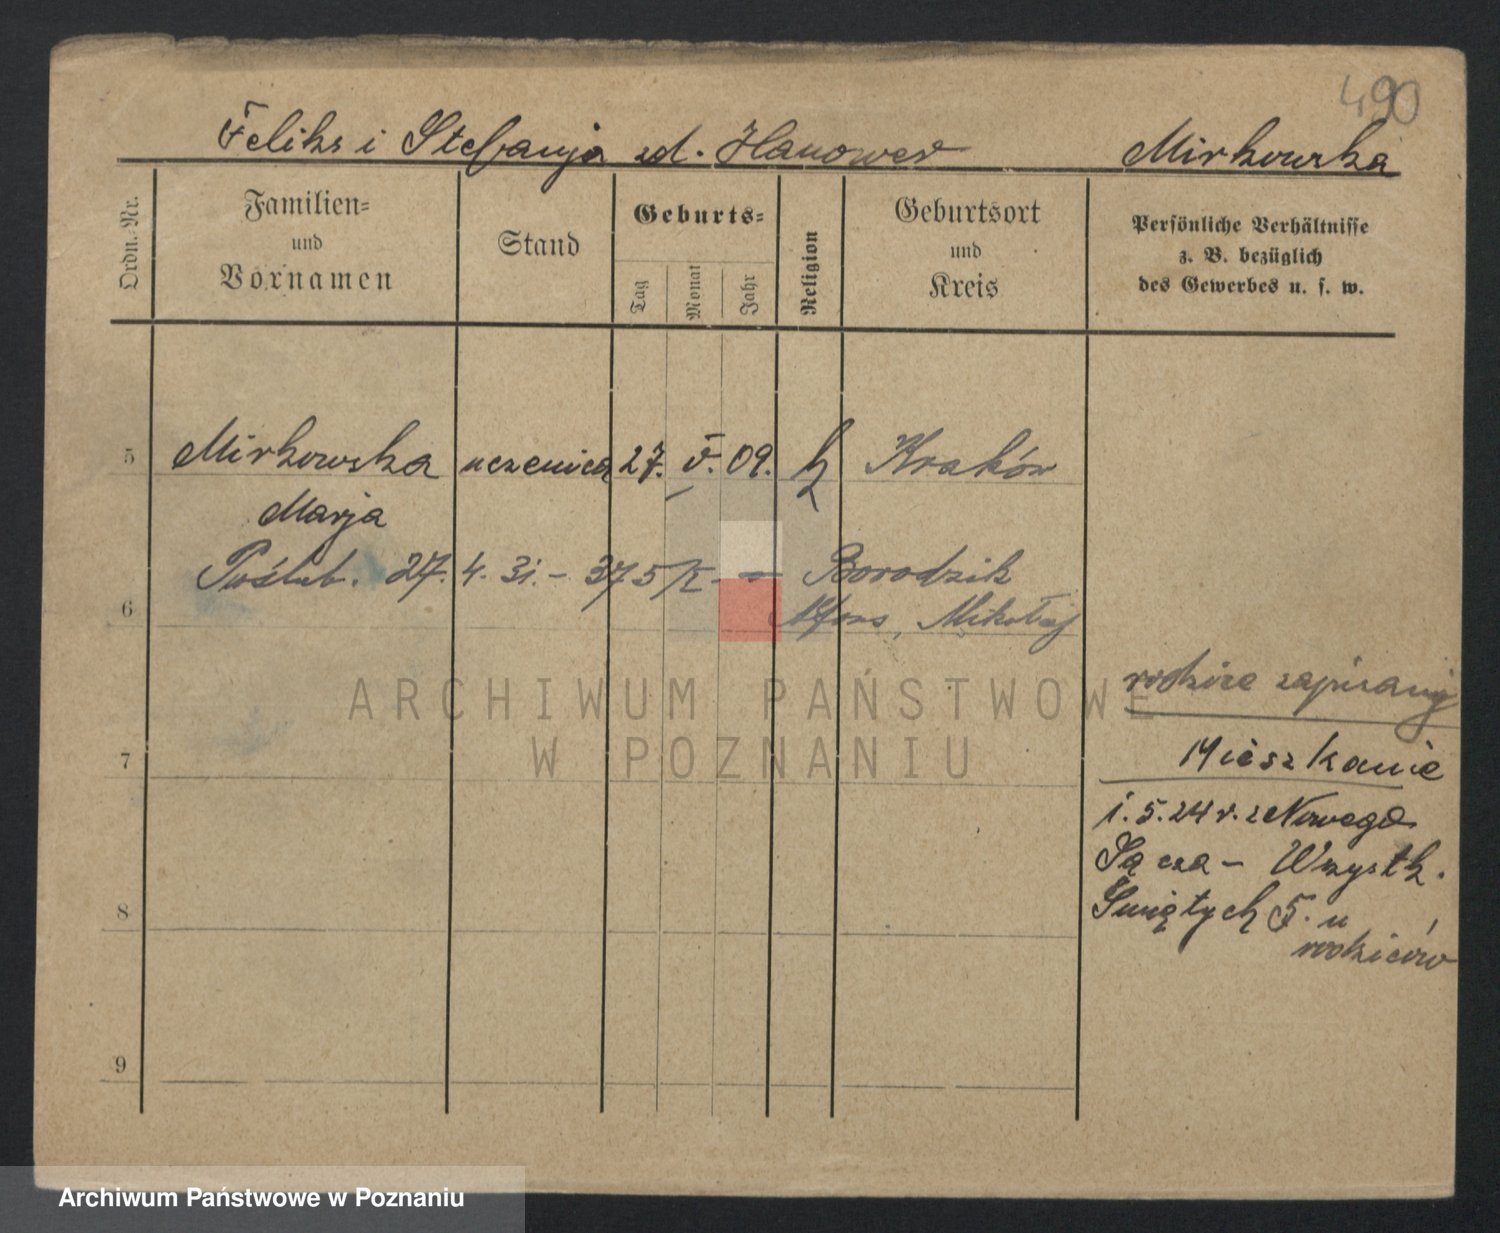 490
Feliks i Stefanja zd. Hanower Mirkowska
Ordn.-Nr.
Familien-
und
Vornamen
Stand
Geburts-
Tag
Monat
Jahr
Religion
Geburtsort
und
Kreis
Persönliche Verhältnisse
z. B. bezüglich
des Gewerbes u. s. w.
5 Mirkowska uczenica 27. V. 09. k Kraków
Marja
Poślub. 27. 4. 31. – 375/K Borodzik
6 Alfons, Mikołaj
rodzice zapisany
ARCHIWUM PAŃSTWOWE
W POZNANIU
7
Mieszkanie
1. 5. 24 r. z Nowego
Sącza – Wszystk.
8
Świętych 5. u
rodziców
9
Archiwum Państwowe w Poznaniu